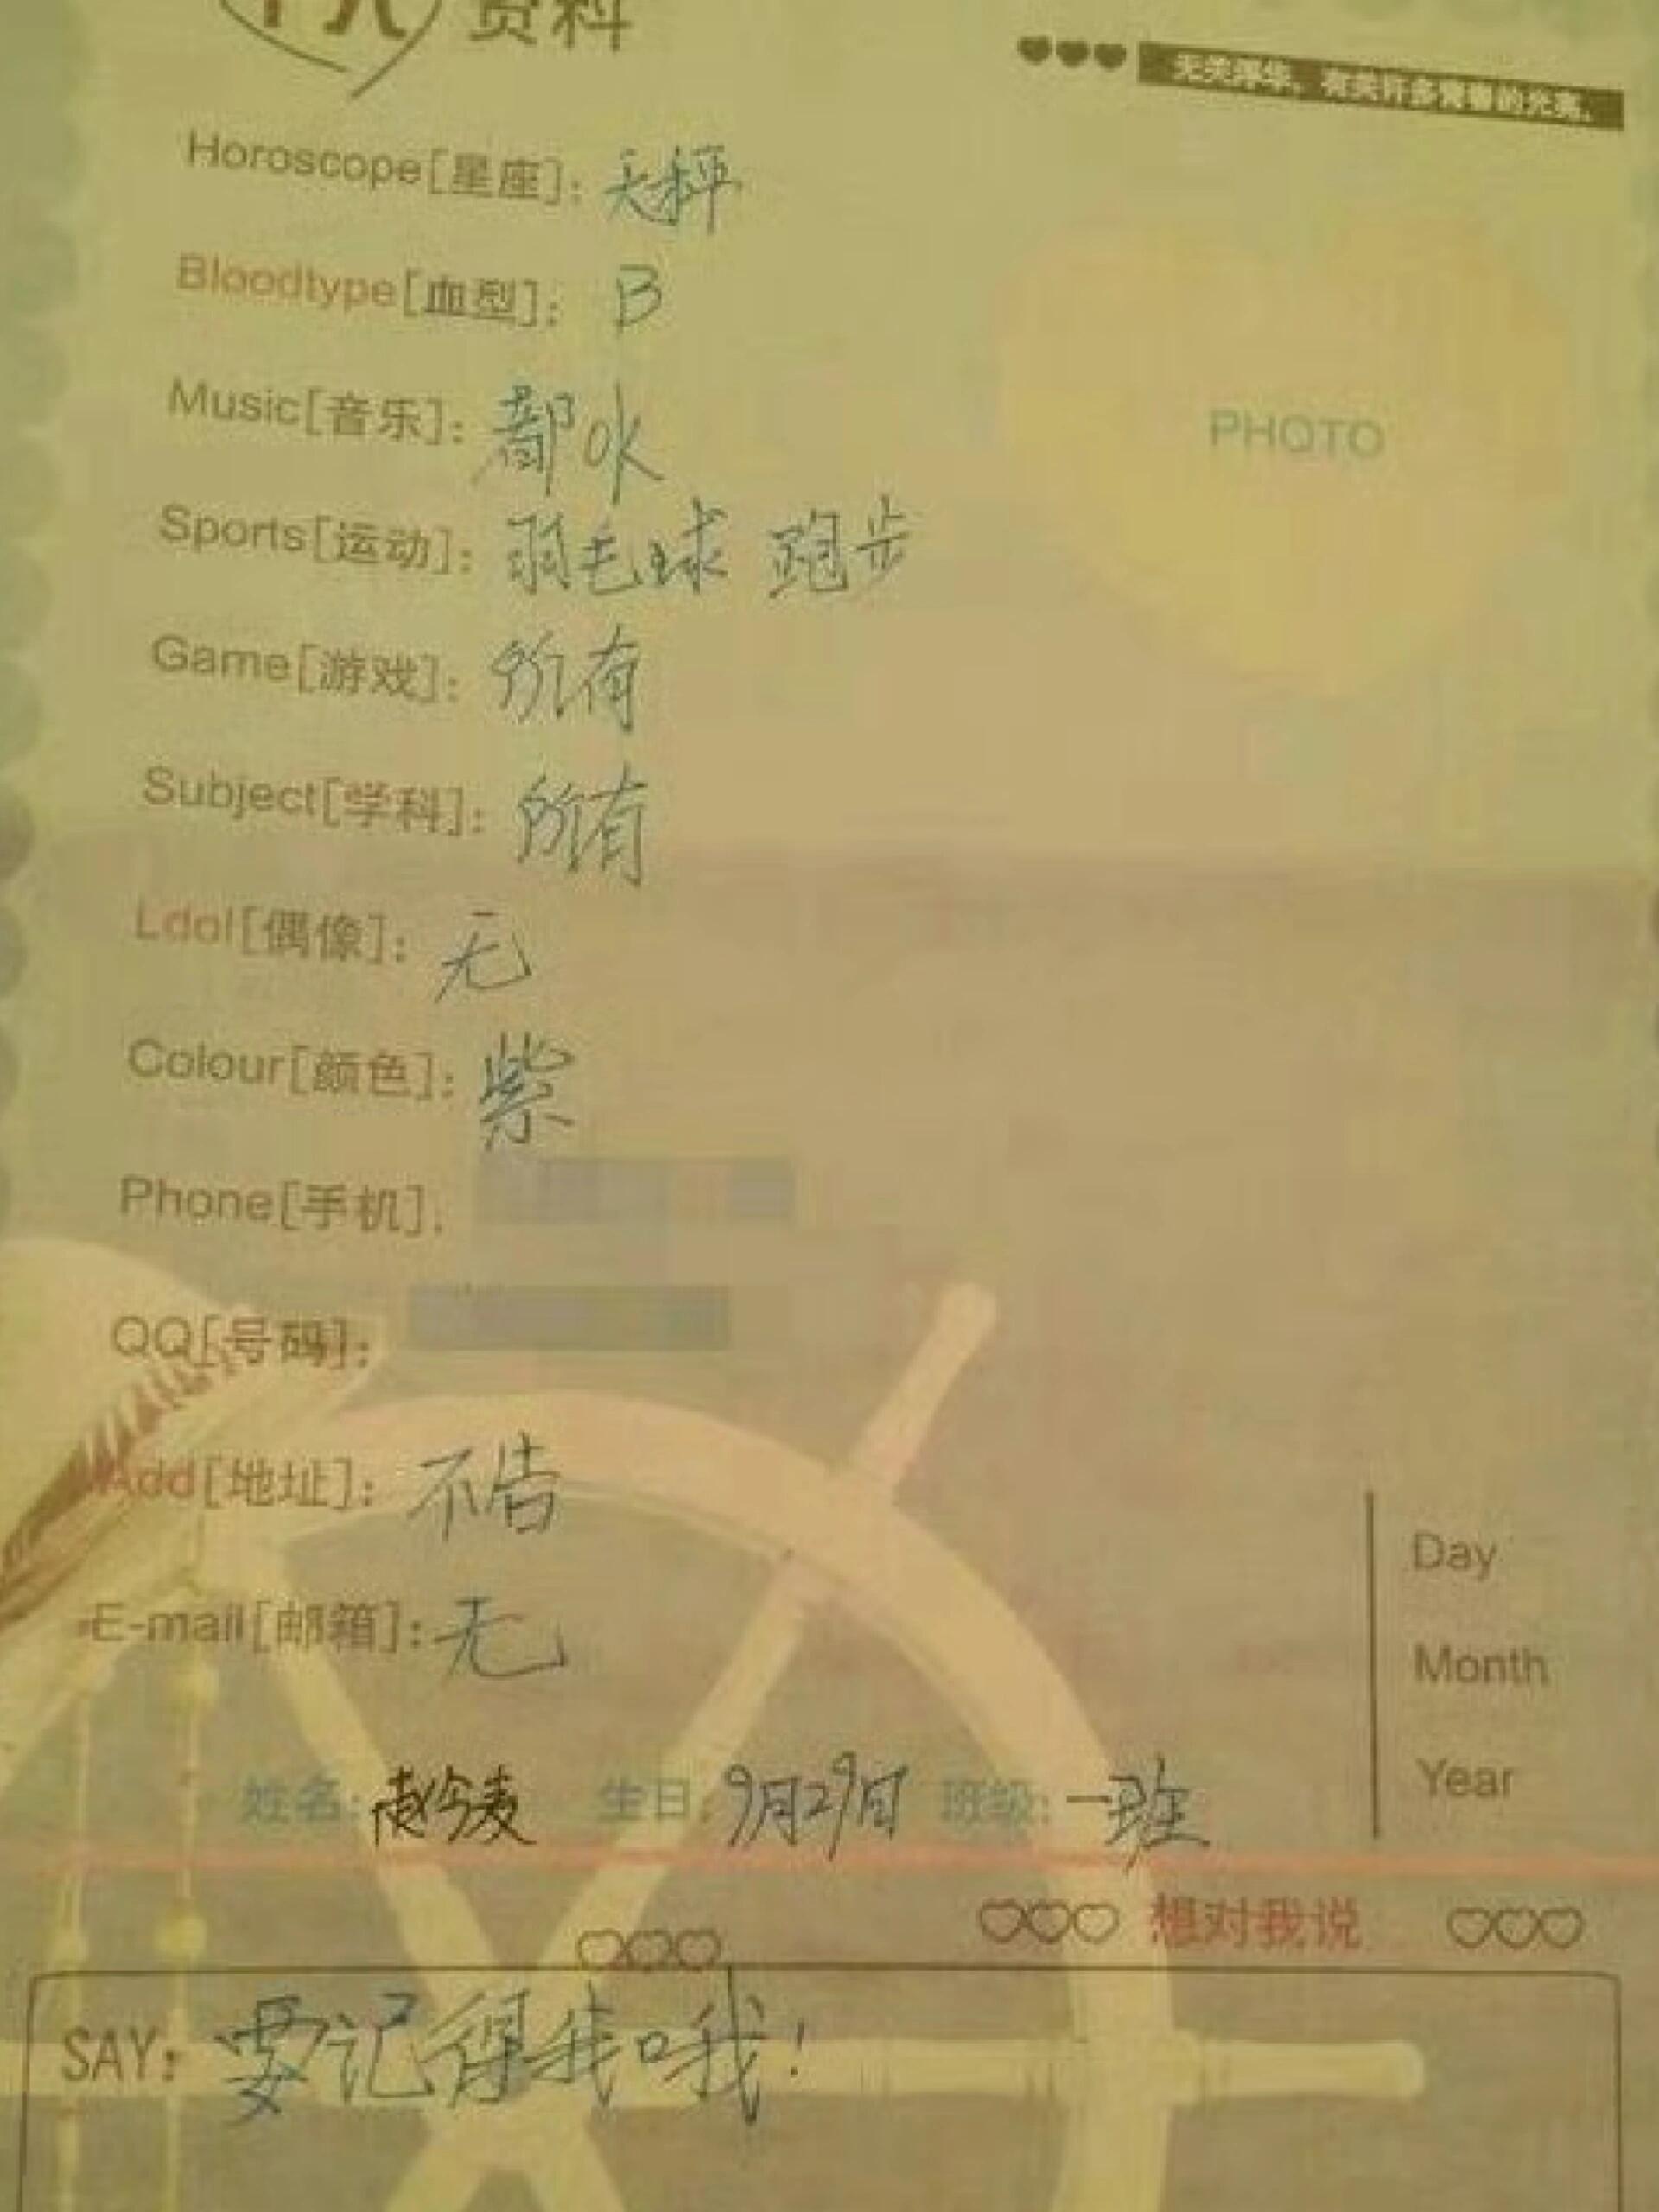 个人资料
无关浮华，有关许多青春的光亮。
Horoscope[星座]：天秤
Bloodtype[血型]：B
PHOTO
Music[音乐]：都听
Sports[运动]：羽毛球 跑步
Game[游戏]：所有
Subject[学科]：所有
Ldol[偶像]：无
Colour[颜色]：紫
Phone[手机]：
QQ[号码]：
Add[地址]：不告
E-mail[邮箱]：无
Day
Month
Year
姓名：赵今麦 生日：9月29日 班级：一班
想对我说
SAY：要记得我哦！